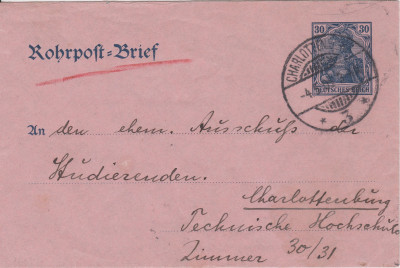 30 30
Rohrpost-Brief
CHARLOTTEN
DEUTSCHES REICH
An den ehem. Ausschuß der
Studierenden.
Charlottenburg
Technische Hochschule
Zimmer 30/31